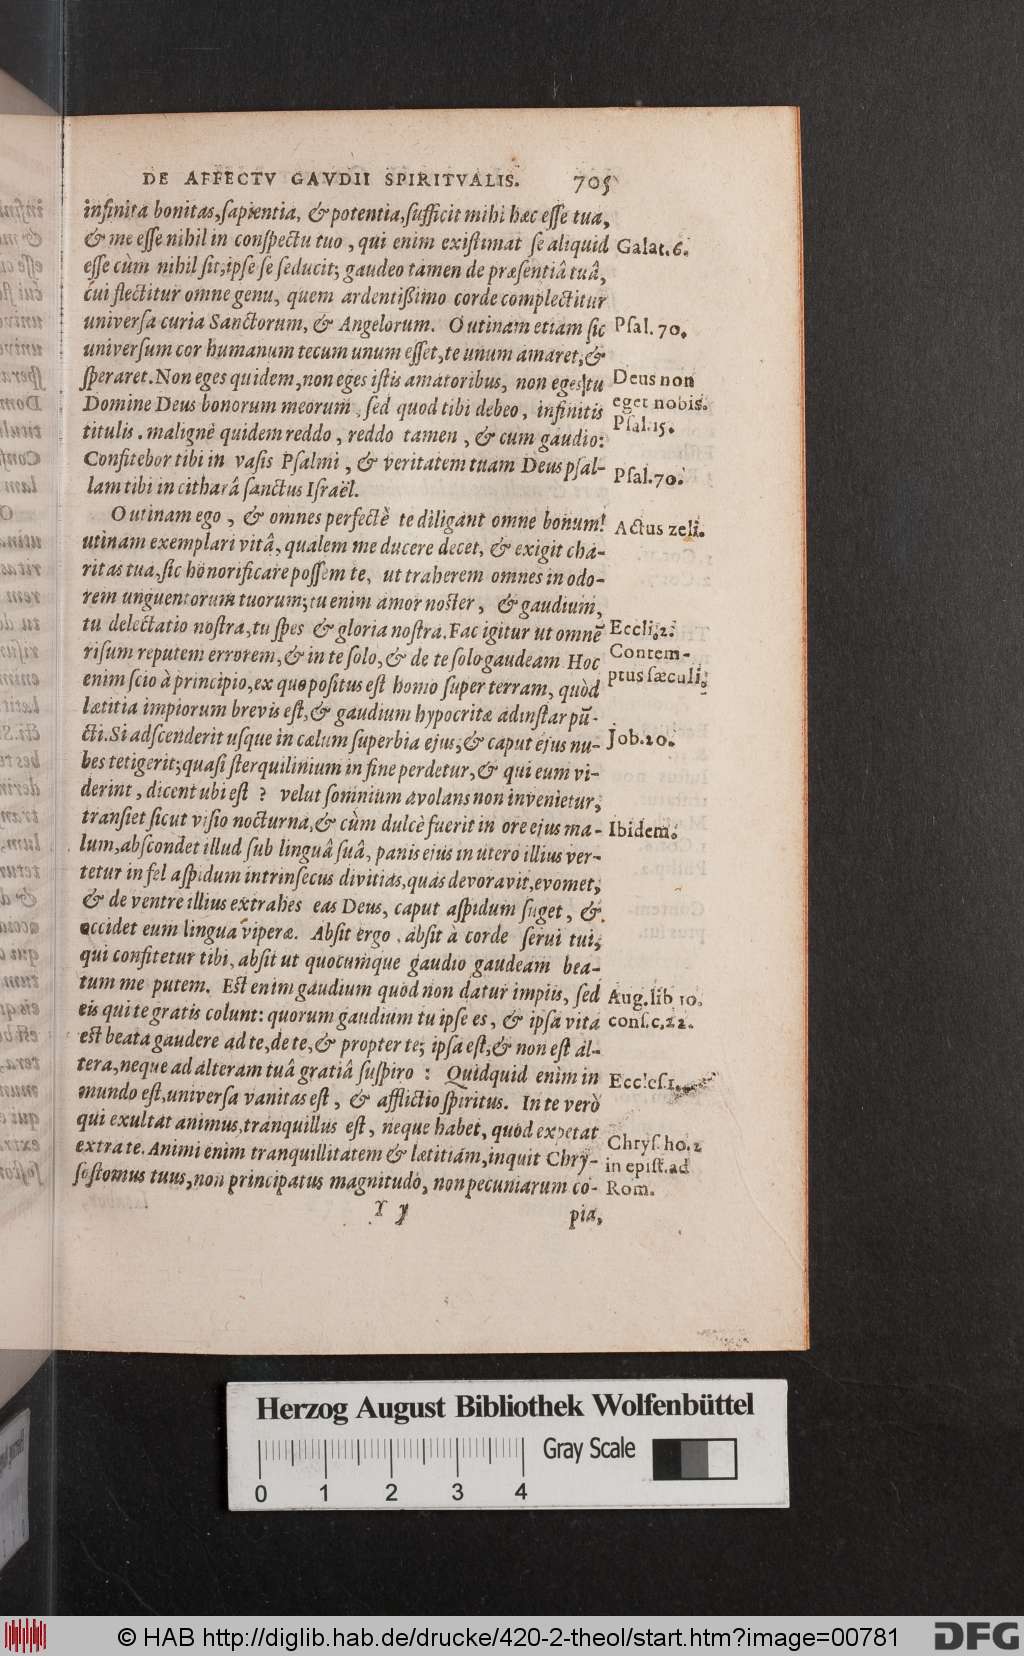 DE AFFECTV GAVDII SPIRITVALIS. 705
infinita bonitas, sapientia, & potentia, sufficit mihi hæc esse tua,
& me esse nihil in conspectu tuo, qui enim existimat se aliquid
Galat. 6.
esse cùm nihil sit, ipse se seducit; gaudeo tamen de præsentiâ tuâ,
cui flectitur omne genu, quem ardentißimo corde complectitur
universa curia Sanctorum, & Angelorum. O utinam etiam sic
Psal. 70.
universum cor humanum tecum unum esset, te unum amaret, &
speraret. Non eges quidem, non eges istis amatoribus, non eges tu
Deus non
Domine Deus bonorum meorum, sed quod tibi debeo, infinitis
eget nobis.
Psal. 15.
titulis. malignè quidem reddo, reddo tamen, & cum gaudio:
Confitebor tibi in vasis Psalmi, & veritatem tuam Deus psal-
Psal. 70.
lam tibi in citharâ sanctus Israël.
O utinam ego, & omnes perfectè te diligant omne bonum!
Actus zeli.
utinam exemplari vitâ, qualem me ducere decet, & exigit cha-
ritas tua, sic honorificare possem te, ut traherem omnes in odo-
rem unguentorum tuorum; tu enim amor noster, & gaudium,
tu delectatio nostra, tu spes & gloria nostra. Fac igitur ut omnē
Eccli. 2.
risum reputem errorem, & in te solo, & de te solo gaudeam Hoc
Contem-
enim scio à principio, ex quo positus est homo super terram, quòd
ptus sæculi.
lætitia impiorum brevis est, & gaudium hypocritæ ad instar pū-
cti. Si adscenderit usque in cælum superbia ejus, & caput ejus nu-
Job. 20.
bes tetigerit; quasi sterquilinium in fine perdetur, & qui eum vi-
derint, dicent ubi est? velut somnium avolans non invenietur,
transiet sicut visio nocturna, & cùm dulcè fuerit in ore ejus ma-
Ibidem.
lum, abscondet illud sub linguâ suâ, panis ejus in utero illius ver-
tetur in fel aspidum intrinsecus divitias, quas devoravit, evomet,
& de ventre illius extrahes eas Deus, caput aspidum suget, &
occidet eum lingua viperæ. Absit ergo, absit à corde servi tui,
qui confitetur tibi, absit ut quocumque gaudio gaudeam bea-
tum me putem. Est enim gaudium quod non datur impiis, sed
Aug. lib 10.
eis qui te gratis colunt: quorum gaudium tu ipse es, & ipsa vita
conf. c. 22.
est beata gaudere ad te, de te, & propter te; ipsa est, & non est al-
tera, neque ad alteram tuâ gratiâ suspiro: Quidquid enim in
Eccles. 1.
mundo est, universa vanitas est, & afflictio spiritus. In te verò
qui exultat animus, tranquillus est, neque habet, quod expetat
Chrys. ho. 2
extra te. Animi enim tranquillitatem & lætitiam, inquit Chry-
in epist. ad
sostomus tuus, non principatus magnitudo, non pecuniarum co-
Rom.
Y y pia,
Herzog August Bibliothek Wolfenbüttel
Gray Scale
0 1 2 3 4
© HAB http://diglib.hab.de/drucke/420-2-theol/start.htm?image=00781
DFG